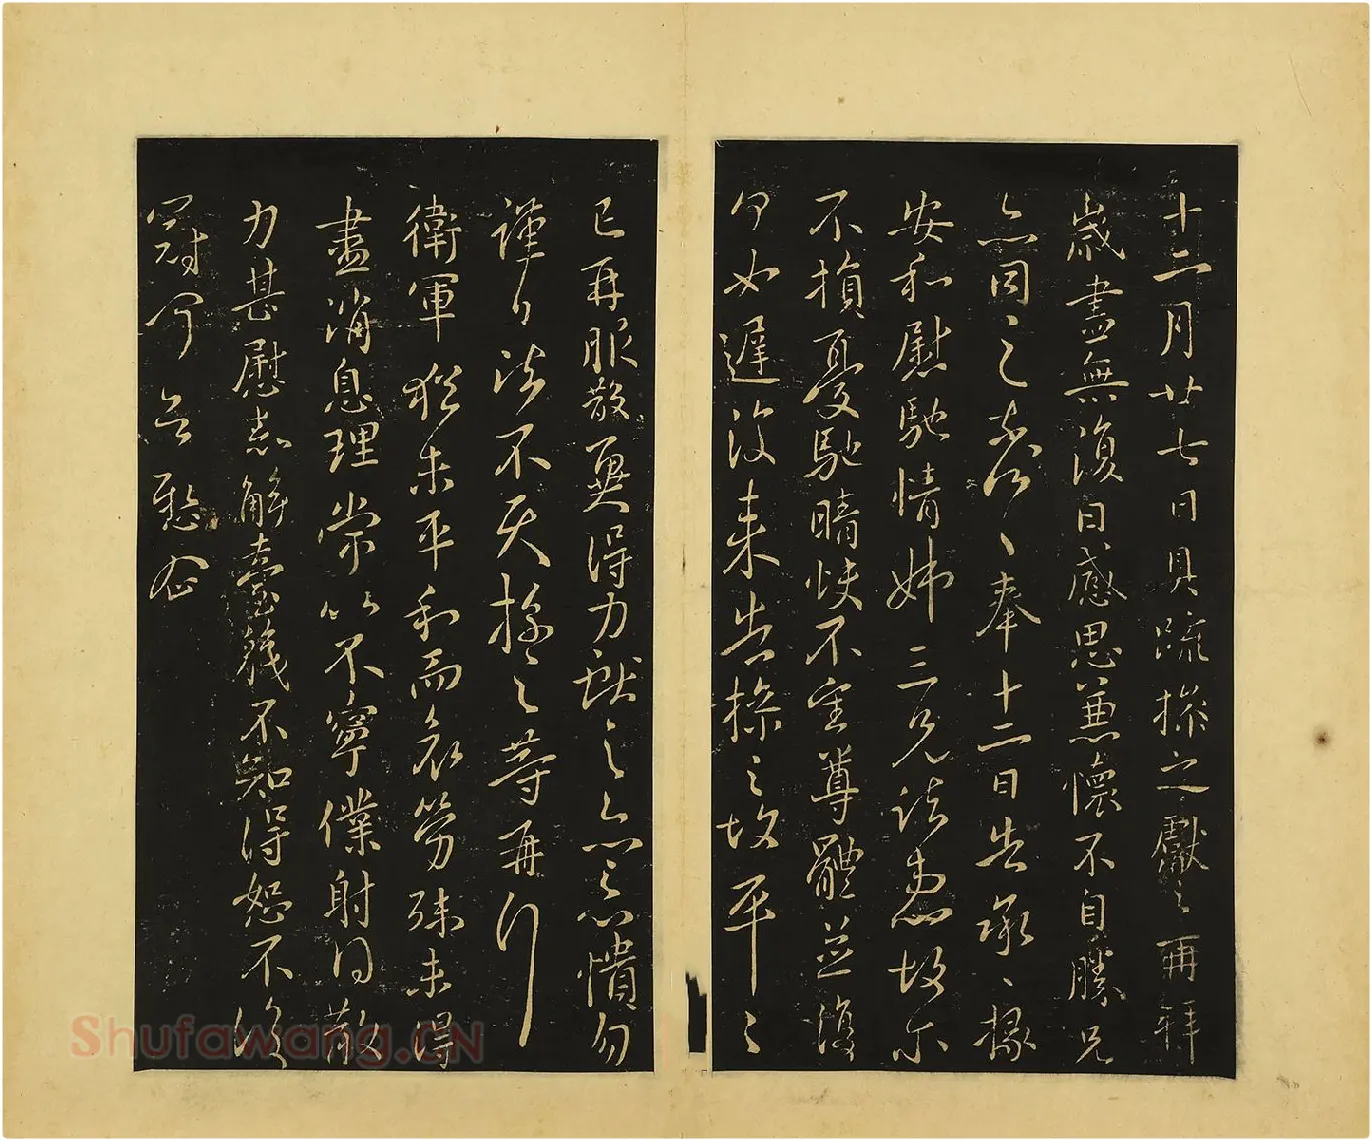 十二月廿七日具疏操之獻之再拜
歲盡無復日感思兼懷不自勝兄
亦同之奉十二日告承掾
安和慰馳情姊三兄諸患故尔
不損憂馳晴快不審尊體並復
何如遲復來告操之故平平
已再服散冀得力獻之心憒勿
謹白諸不具操之等再行
衛軍猶未平和而哀勞殊未得
盡消息理常以不寧僕射得散
力甚慰志解臺職不知得恕不
懸企
Shufawang.CN